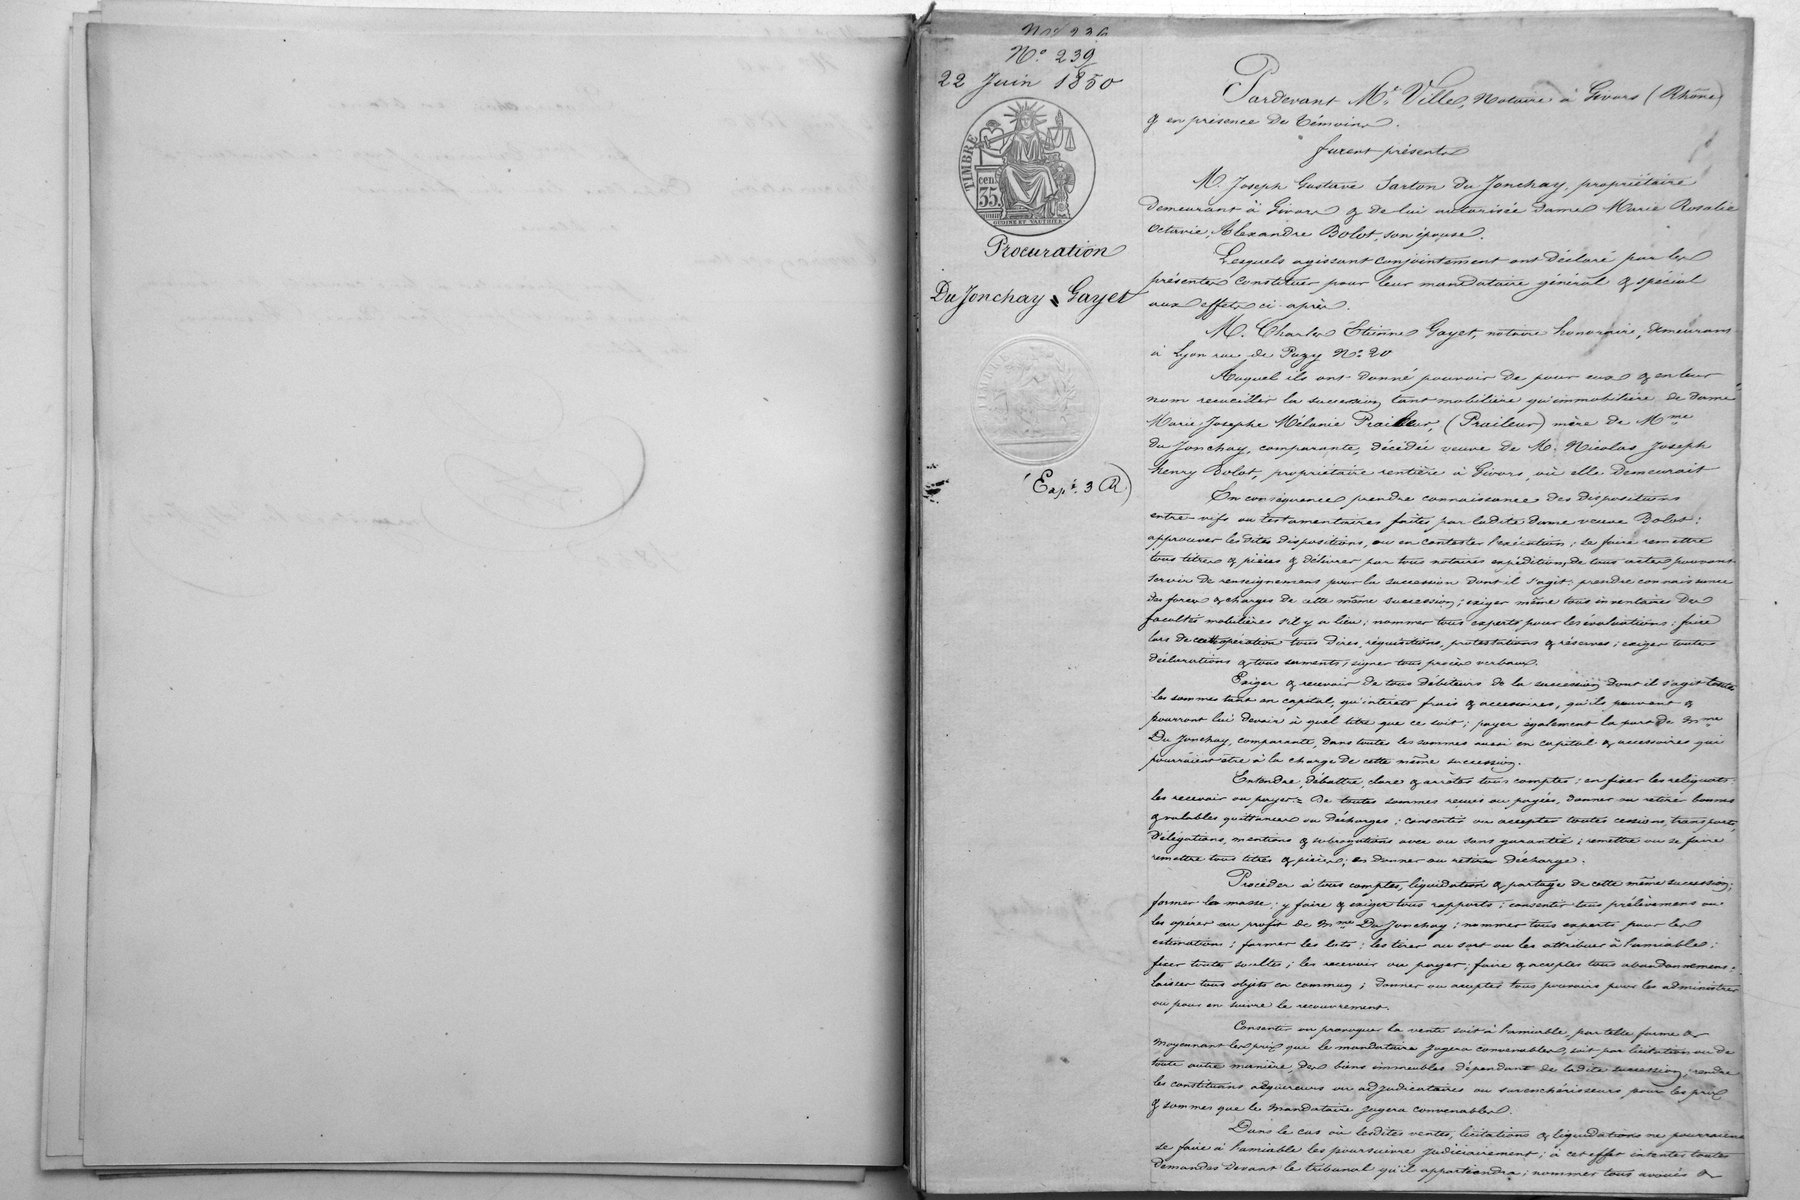 Nos 236
N° 239
22 Juin 1850
TIMBRE
cent
35
OUDINE ET VAUTHIER
Procuration
Du Jonchay à Gayet
Expé. 3 R
Pardevant Me Ville, Notaire à Givors (Rhône)
& en présence de témoins.
furent présents
M. Joseph Gustave Sarton Du Jonchay, propriétaire
demeurant à Givors & de lui autorisée dame Marie Rosalie
Octavie, Alexandre Bolot, son épouse.
Lesquels agissant conjointement ont déclaré par les
présentes constituer pour leur mandataire général & spécial
aux effets ci après.
M. Charles Etienne Gayet, notaire honoraire, demeurant
à Lyon rue de Puzy N° 20
Auquel ils ont donné pouvoir de pour eux & en leur
nom recueillir la succession tant mobilière qu'immobilière de dame
Marie Josephe Mélanie Praileur, (Praileur) mère de Mme
du Jonchay, comparante, décédée veuve de M. Nicolas Joseph
Henry Bolot, propriétaire rentière à Givors, où elle demeurait
En conséquence prendre connaissance des dispositions
entre-vifs ou testamentaires faites par ladite dame veuve Bolot;
approuver les dites dispositions, ou en contester l'exécution; se faire remettre
tous titres & pièces & délivrer par tous notaires expédition de tous actes pouvant
servir de renseignemens pour la succession dont il s'agit; prendre connaissance
des forces & charges de cette même succession; exiger même tous inventaires des
facultés mobilières s'il y a lieu; nommer tous experts pour les évaluations; faire
lors de cette opération tous dires, réquisitions, protestations & réserves; exiger toutes
déclarations & tous serments; signer tous procès verbaux.
Exiger & recevoir de tous débiteurs de la succession dont il s'agit toutes
les sommes tant en capital, qu'intérêts frais & accessoires, qu'ils peuvent &
pourront lui devoir à quel titre que ce soit; payer également la part de Mme
Du Jonchay, comparante, dans toutes les sommes aussi en capital & accessoires qui
pourraient être à la charge de cette même succession.
Entendre, débattre, clore & arrêter tous comptes; en fixer les reliquats
les recevoir ou payer = De toutes sommes reçues ou payées, donner ou retirer bonnes
& valables quittances ou décharges; consentir ou accepter toutes cessions, transports,
délégations, mentions & subrogations avec ou sans garantie; remettre ou se faire
remettre tous titres & pièces; en donner ou retirer décharge.
Procéder à tous comptes, liquidation & partage de cette même succession;
former la masse; y faire & exiger tous rapports; consentir tous prélèvemens ou
les opérer au profit de Mme Du Jonchay; nommer tous experts pour les
estimations; former les lots; les tirer au sort ou les attribuer à l'amiable;
fixer toutes soultes; les recevoir ou payer; faire & accepter tous abandonnemens;
laisser tous objets en commun; donner ou accepter tous pouvoirs pour les administrer
ou pour en suivre le recouvrement.
Consentir ou provoquer la vente soit à l'amiable, par telle forme &
moyennant les prix que le mandataire jugera convenables, soit par licitation ou de
toute autre manière, des biens immeubles dépendant de ladite succession; rendre
les constituans acquéreurs ou adjudicataires ou surenchérisseurs pour les prix
& sommes que le mandataire jugera convenables.
Dans le cas où lesdites ventes, licitations & liquidations ne pourraient
se faire à l'amiable les poursuivre judiciairement; à cet effet intenter toutes
demandes devant le tribunal qu'il appartiendra; nommer tous avoués &